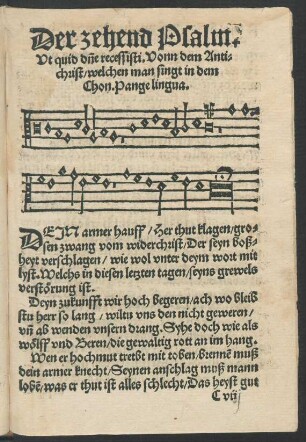 Der zehend Psalm.
Vt quid dñe recessisti. Vonn dem Anti-
christ/welchen man singt in dem
Thon. Pange lingua.
DEIN armer hauff/ Her thut klagen/gros-
sen zwang vom widerchrist/Der seyn boß-
heyt verschlagen/ wie wol vnter deym wort mit
lyst. Welchs in diesen letzten tagen/seyns grewels
verstörung ist.
Deyn zukunfft wir hoch begeren/ach wo bleib
stu herr so lang / wiltu vns den nicht geweren/
vñ ab wenden vnsern drang. Syhe doch wie als
wölff vnd Beren/die gewaltig rott an im hang.
Wen er hochmut treibt mit toben/brennẽ muß
dein armer knecht/Seynen anschlag muß mann
lobẽ/was er thut ist alles schlecht/Das heyst gut
C viij